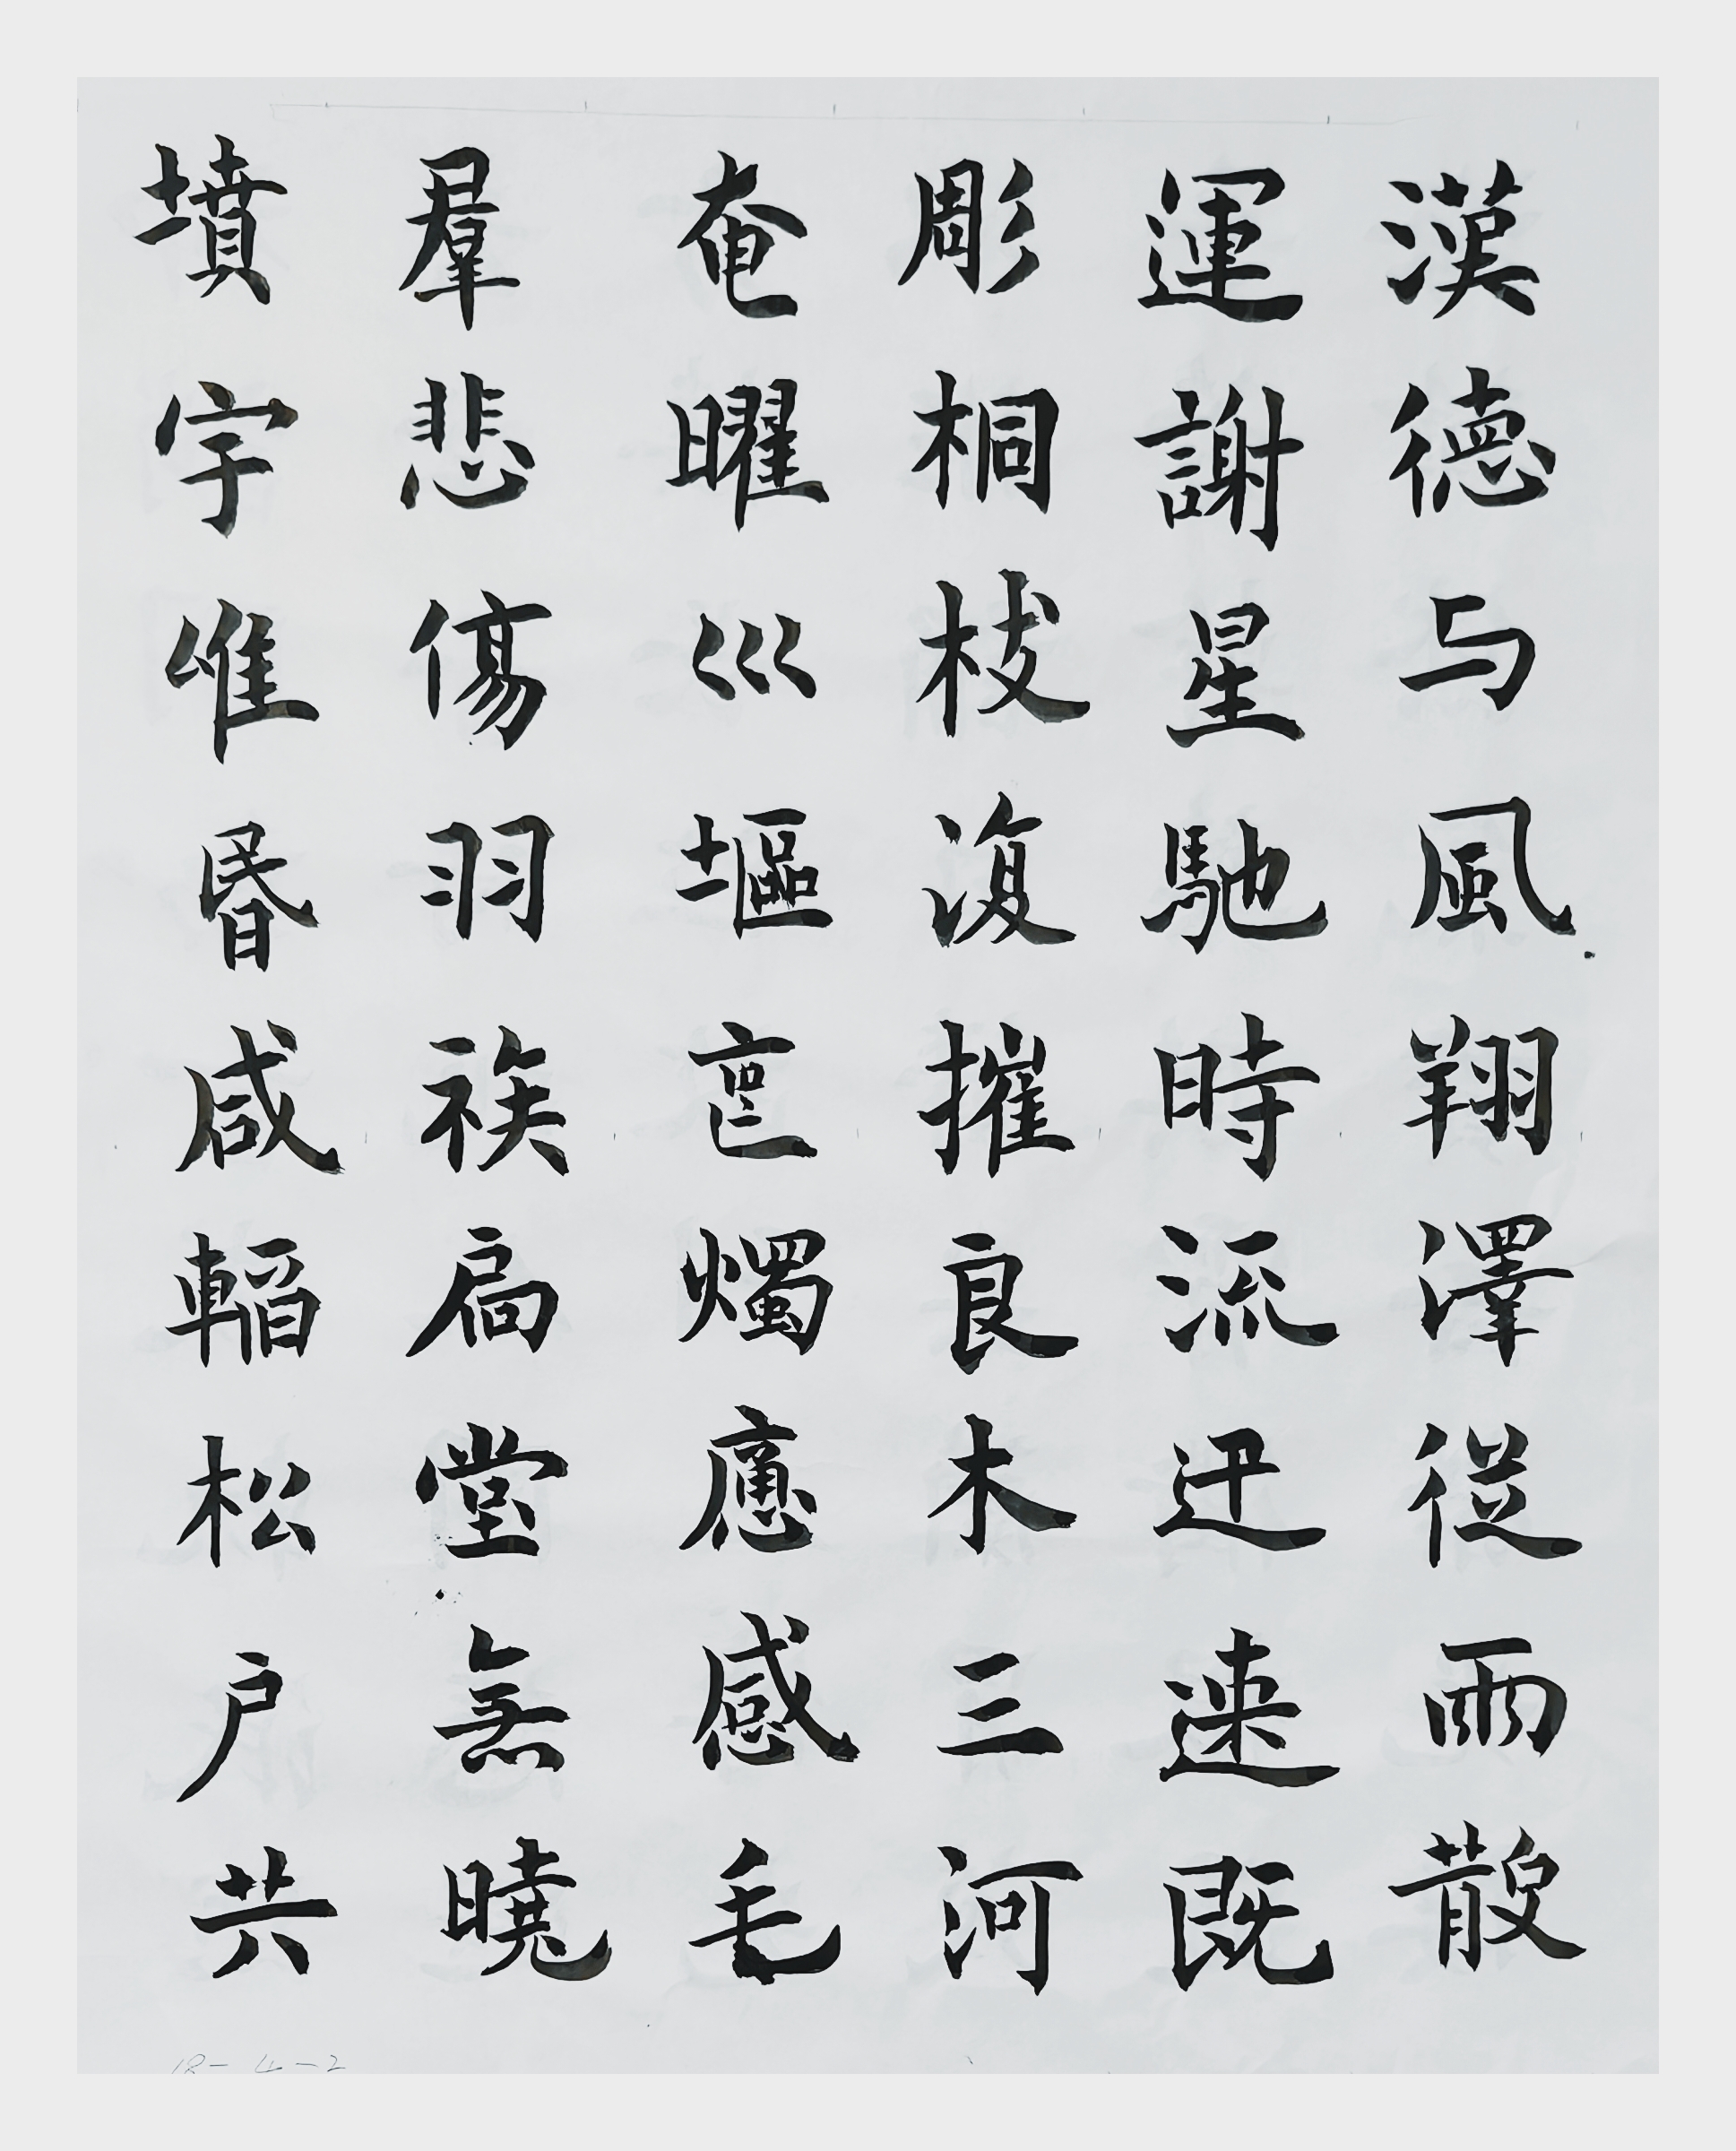 漢德与風翔澤従雨散
運謝星馳時流迅速既
彫桐枝復摧良木三河
奄曜巛塸燭應感毛
羣悲傷羽族扃堂無曉
墳宇唯昬咸轁松户共
18-4-2